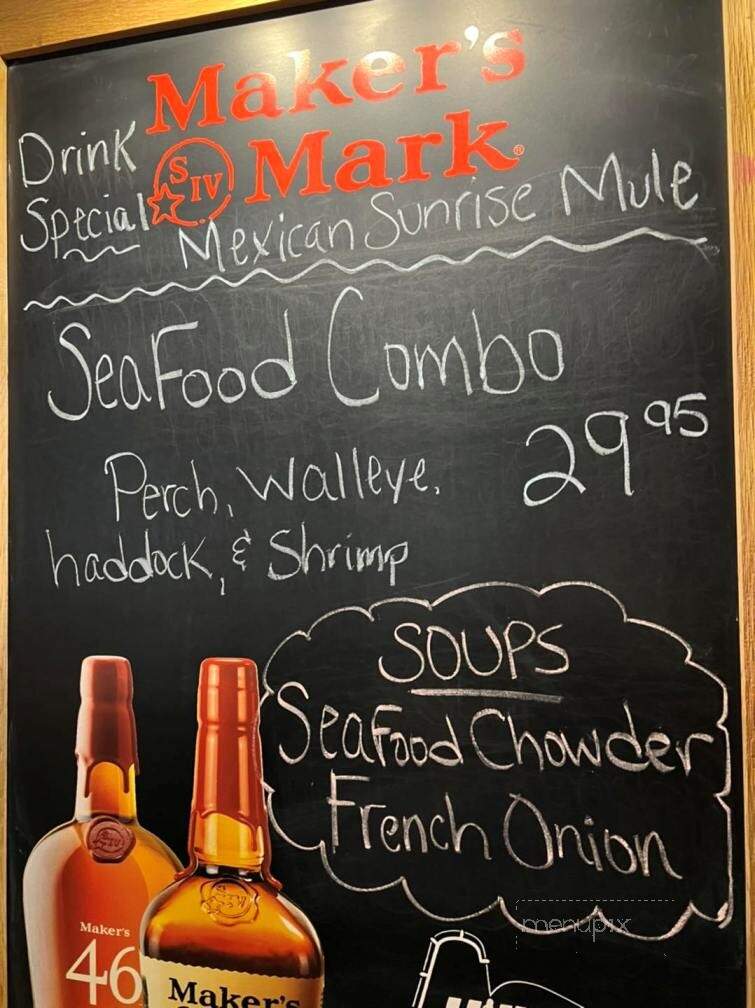 Maker's
Mark®
S IV
Drink
Special
Mexican Sunrise Mule
SeaFood Combo
29 95
Perch, Walleye,
haddock, & Shrimp
SOUPS
SeaFood Chowder
French Onion
Maker's
46
Maker's
menupix